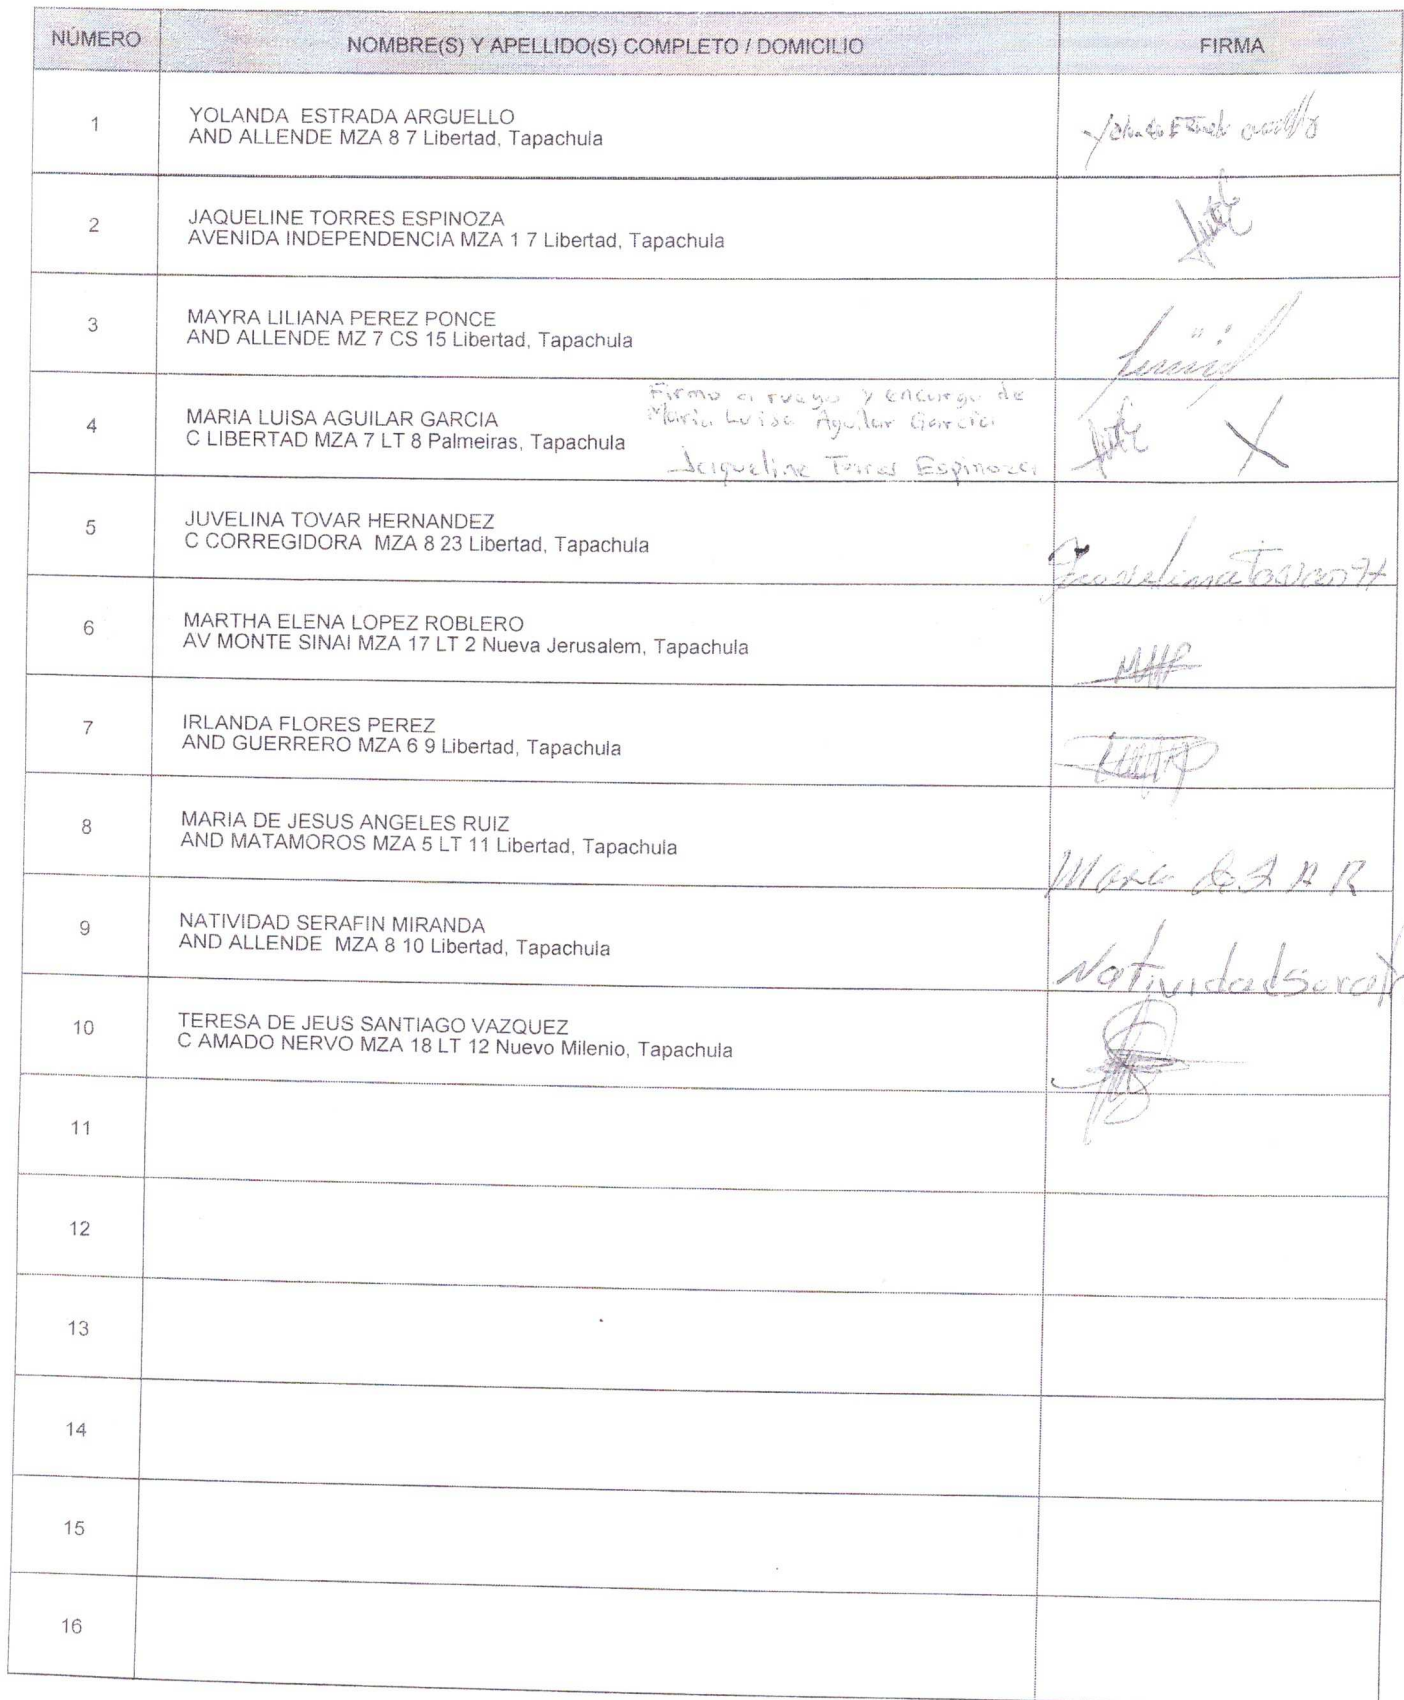 NÚMERO NOMBRE(S) Y APELLIDO(S) COMPLETO / DOMICILIO FIRMA
1 YOLANDA ESTRADA ARGUELLO
AND ALLENDE MZA 8 7 Libertad, Tapachula
2 JAQUELINE TORRES ESPINOZA
AVENIDA INDEPENDENCIA MZA 1 7 Libertad, Tapachula
3 MAYRA LILIANA PEREZ PONCE
AND ALLENDE MZ 7 CS 15 Libertad, Tapachula
Firmo a ruego y encargo de
4 MARIA LUISA AGUILAR GARCIA Maria Luisa Aguilar Garcia
C LIBERTAD MZA 7 LT 8 Palmeiras, Tapachula X
Jaqueline Torres Espinoza
5 JUVELINA TOVAR HERNANDEZ
C CORREGIDORA MZA 8 23 Libertad, Tapachula
6 MARTHA ELENA LOPEZ ROBLERO
AV MONTE SINAI MZA 17 LT 2 Nueva Jerusalem, Tapachula
7 IRLANDA FLORES PEREZ
AND GUERRERO MZA 6 9 Libertad, Tapachula
8 MARIA DE JESUS ANGELES RUIZ
AND MATAMOROS MZA 5 LT 11 Libertad, Tapachula
Maria de J A R
9 NATIVIDAD SERAFIN MIRANDA
AND ALLENDE MZA 8 10 Libertad, Tapachula
Natividad
10 TERESA DE JEUS SANTIAGO VAZQUEZ
C AMADO NERVO MZA 18 LT 12 Nuevo Milenio, Tapachula
11
12
13
14
15
16